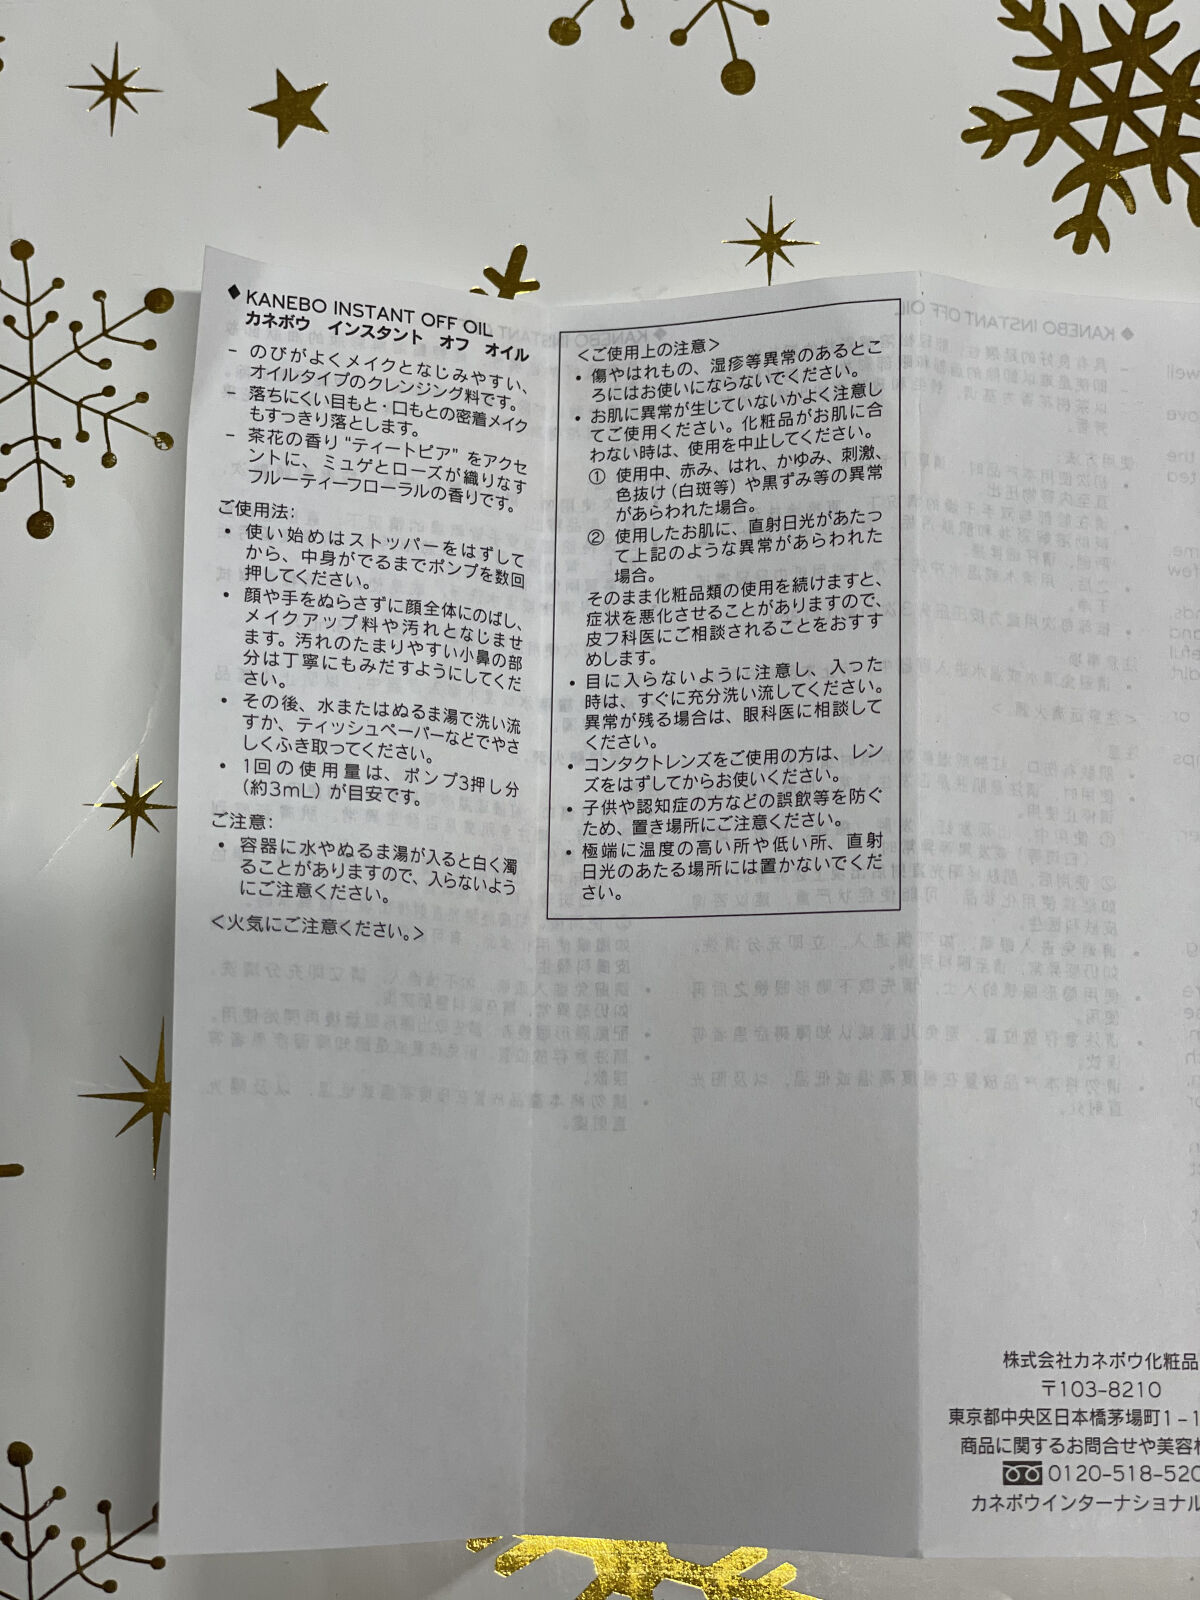 ◆ KANEBO INSTANT OFF OIL
カネボウ インスタント オフ オイル
– のびがよくメイクとなじみやすい、
オイルタイプのクレンジング料です。
– 落ちにくい目もと・口もとの密着メイク
もすっきり落とします。
– 茶花の香り“ティートピア”をアクセ
ントに、ミュゲとローズが織りなす
フルーティーフローラルの香りです。
ご使用法:
• 使い始めはストッパーをはずして
から、中身がでるまでポンプを数回
押してください。
• 顔や手をぬらさずに顔全体にのばし、
メイクアップ料や汚れとなじませ
ます。汚れのたまりやすい小鼻の部
分は丁寧にもみだすようにしてくだ
さい。
• その後、水またはぬるま湯で洗い流
すか、ティッシュペーパーなどでやさ
しくふき取ってください。
• 1回の使用量は、ポンプ3押し分
(約3mL)が目安です。
ご注意:
• 容器に水やぬるま湯が入ると白く濁
ることがありますので、入らないよう
にご注意ください。
<火気にご注意ください。>
<ご使用上の注意>
• 傷やはれもの、湿疹等異常のあるとこ
ろにはお使いにならないでください。
• お肌に異常が生じていないかよく注意し
てご使用ください。化粧品がお肌に合
わない時は、使用を中止してください。
① 使用中、赤み、はれ、かゆみ、刺激、
色抜け(白斑等)や黒ずみ等の異常
があらわれた場合。
② 使用したお肌に、直射日光があたっ
て上記のような異常があらわれた
場合。
そのまま化粧品類の使用を続けますと、
症状を悪化させることがありますので、
皮フ科医にご相談されることをおすす
めします。
• 目に入らないように注意し、入った
時は、すぐに充分洗い流してください。
異常が残る場合は、眼科医に相談して
ください。
• コンタクトレンズをご使用の方は、レン
ズをはずしてからお使いください。
• 子供や認知症の方などの誤飲等を防ぐ
ため、置き場所にご注意ください。
• 極端に温度の高い所や低い所、直射
日光のあたる場所には置かないでくだ
さい。
株式会社カネボウ化粧品
〒103-8210
東京都中央区日本橋茅場町1-1
商品に関するお問合せや美容
0120-518-520
カネボウインターナショナル